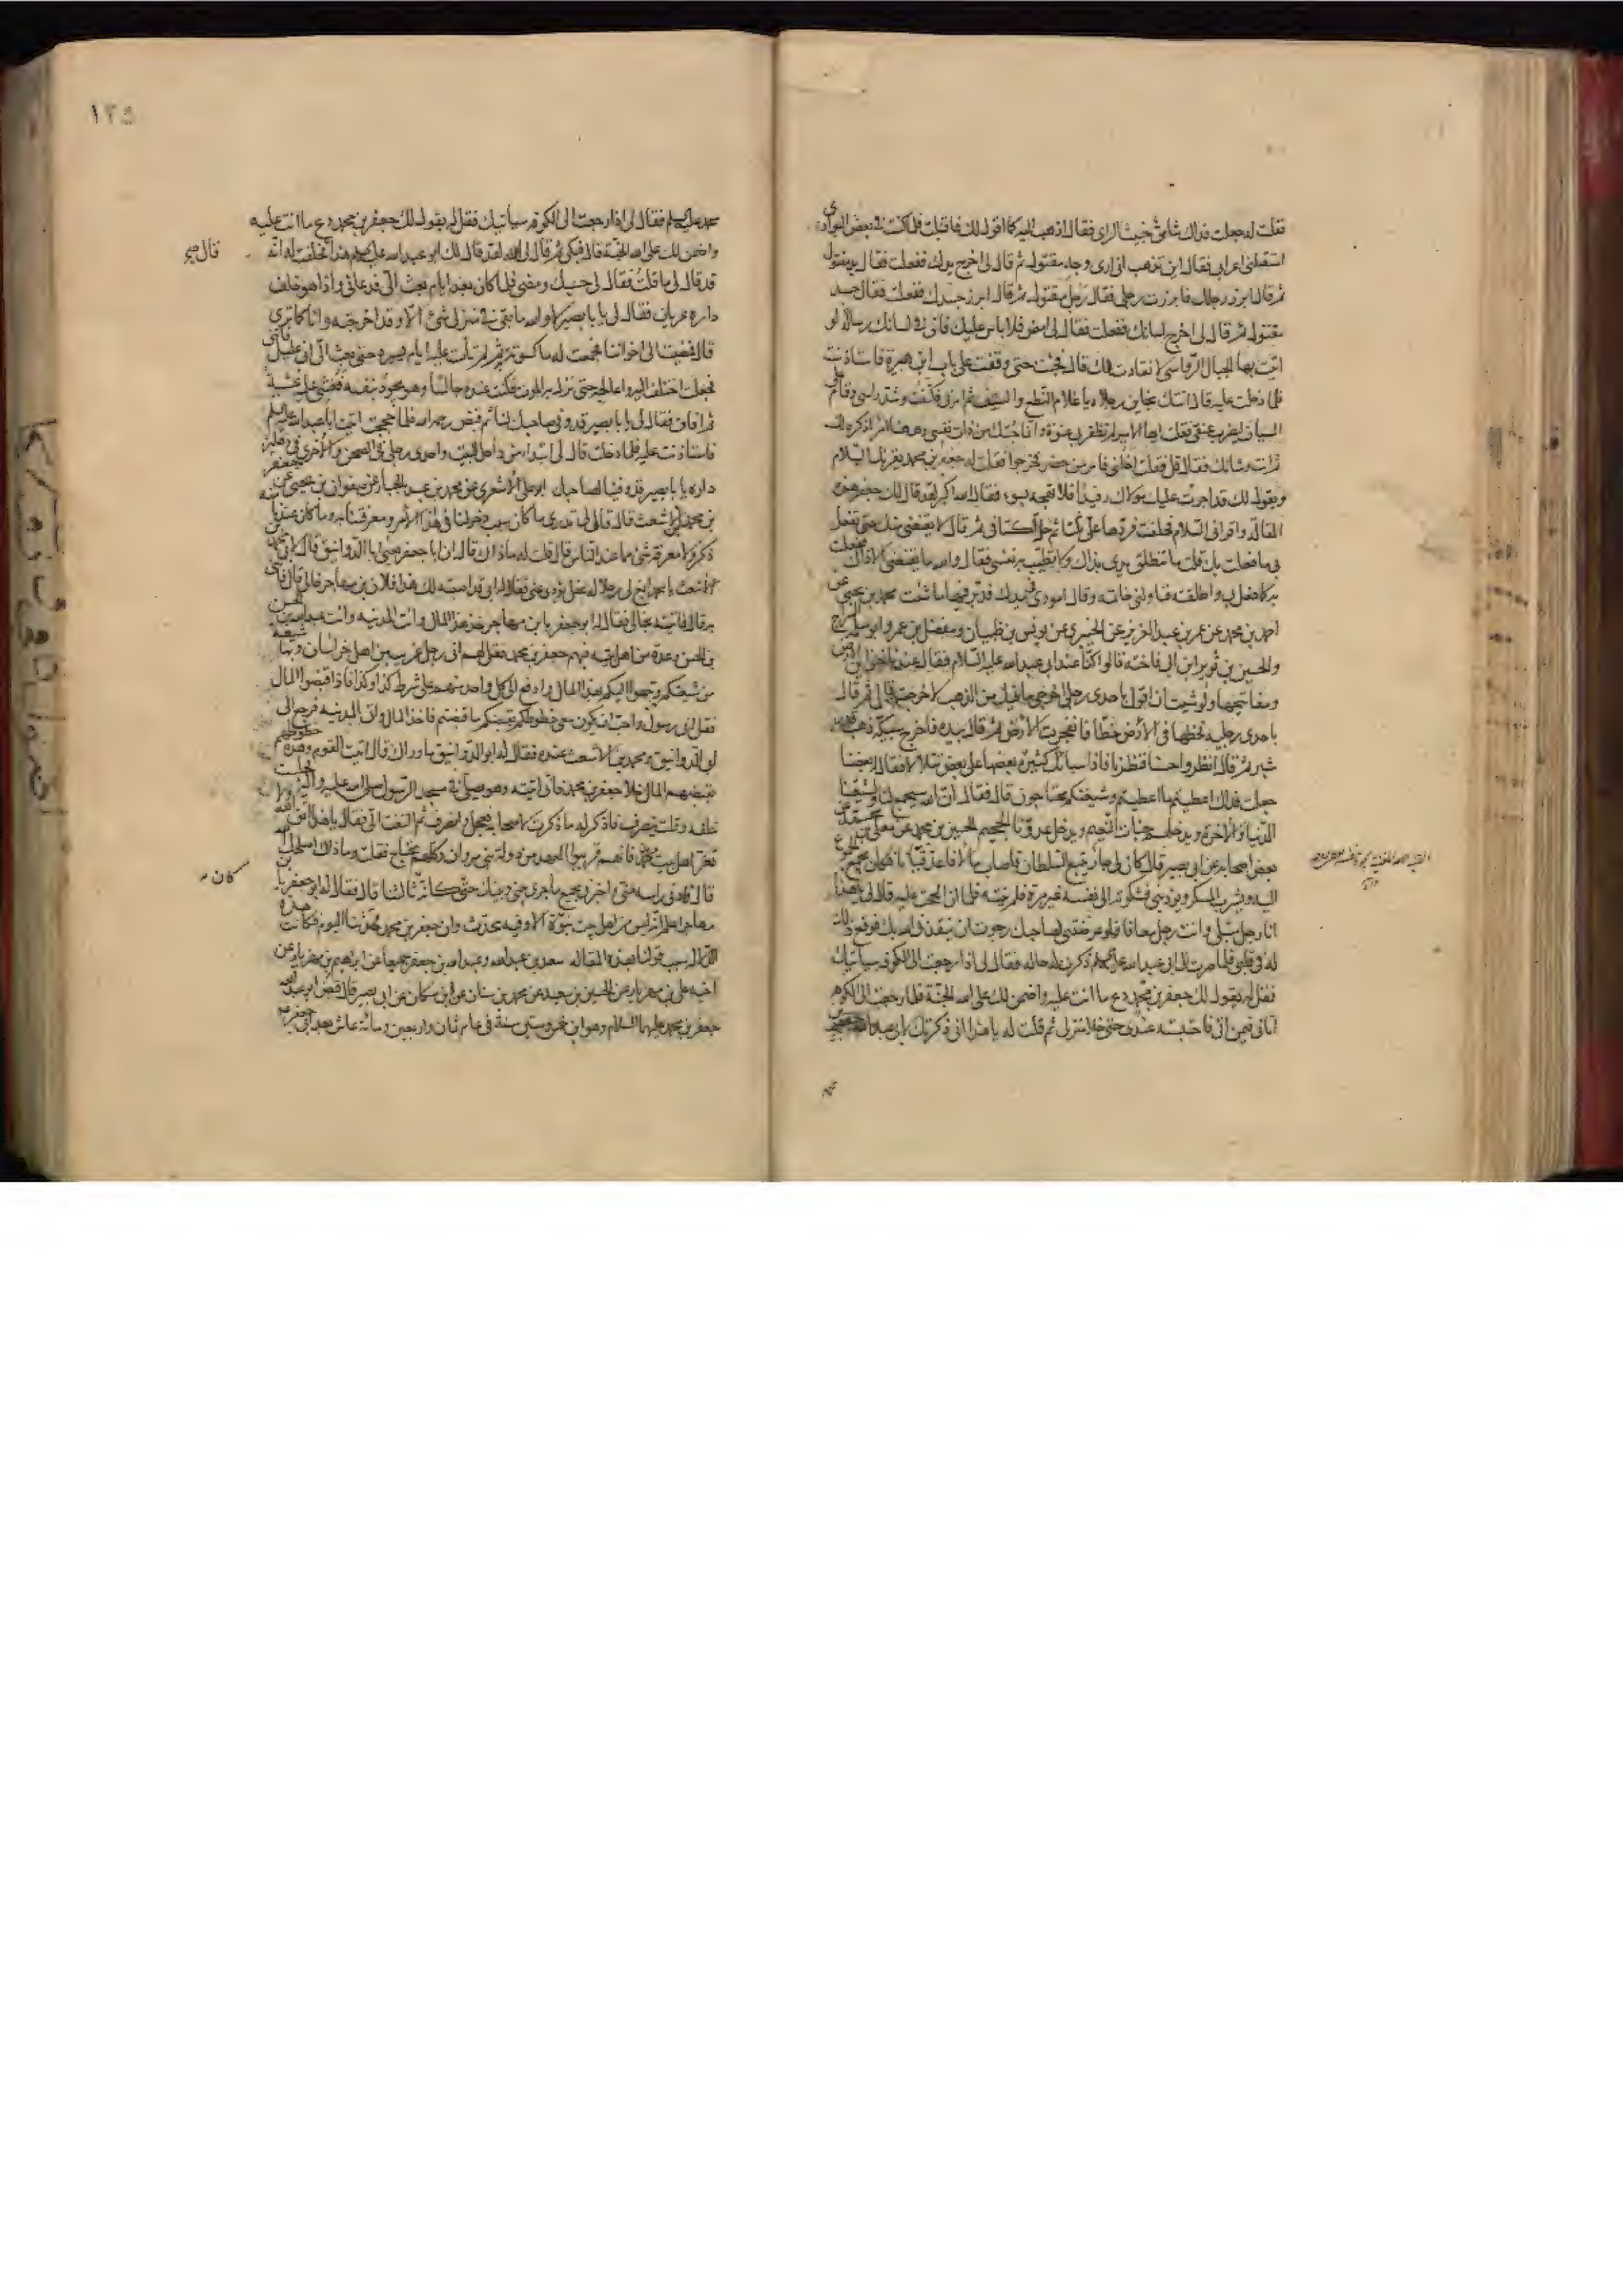 فقلت له جعلت فداك شامي خبيث الراى فقال اذهب اليه كما اقول لك فاقبلت فلما كنت فى بعض البوادى
استقبلنى اعرابى فقال اين تذهب انى ارى وجه مقتول ثم قال لى اخرج يدك ففعلت فقال يد مقتول
ثم قال ابرز رجلك فابرزت رجلى فقال رجل مقتول ثم قال ابرز جسدك ففعلت فقال جسد
مقتول ثم قال لى اخرج لسانك ففعلت فقال لى امض فلا باس عليك فانّ فى لسانك رسالة لو
اتيت بها الجبال الرواسى لانقادت لك قال فجئت حتى وقفت على باب ابن هبيرة فاستاذنت
فلما دخلت عليه قال اتتك بحاين رجلاه يا غلام النطع والسيف ثم امر بى فكتفت وشد راسى وقام علىّ
السياف ليضرب عنقى فقلت ايها الامير لم تظفر بى عنوة وانما جئتك من ذات نفسى وههنا امر اذكره لك
ثم انت وشانك فقال قل فقلت اخلنى فامر من حضر فخرجوا فقلت له جعفر بن محمد يقرئك السلام
ويقول لك قد اجرت عليك مولاك رفيدا فلا تهجه بسوء فقال الله اكبر لقد قال لك جعفر هذه
المقالة واقرانى السلام فحلفت فردها علىّ ثلثا ثم حلّ اكتافى ثم قال لا يقنعنى منك حتى تفعل
بى ما فعلت بك قلت ما تنطلق يدى بذاك ولا تطيب به نفسى فقال والله ما يقنعنى الا ذاك ففعلت
به كما فعل بى واطلقته فناولنى خاتمه وقال امورى فى يدك فدبّر فيها ما شئت محمد بن يحيى عن
احمد بن محمد عن عمر بن عبد العزيز عن الخيبرى عن يونس بن ظبيان ومفضل بن عمر وابو سلمه السراج
والحسين بن ثوير ابن ابى فاخته قالوا كنّا عند ابى عبد الله عليه السلام فقال عندنا خزاين الارض
ومفاتيحها ولو شئت ان اقول باحدى رجلى اخرجى ما فيك من الذهب لاخرجت قال ثم قال
باحدى رجليه فخطها فى الأرض خطّا فانفجرت الارض ثم قال بيده فاخرج سبيكة ذهب قدر
شبر ثم قال انظروا حسنا فنظرنا فاذا سبائك كثيرة بعضها على بعض تتلالأ فقال له بعضنا
جعلت فداك اعطيتم ما اعطيتم وشيعتكم محتاجون قال فقال انّ الله سيجمع لنا ولشيعتنا
الدنيا والاخرة ويدخلهم جنات النعيم ويدخل عدوّنا الجحيم الحسين بن محمد عن معلى بن محمد عن
بعض اصحابه عن ابى بصير قال كان لى جار يتبع السلطان فاصاب مالا فاعدّ قيانا وكان يجمع الجموع
اليه ويشرب المسكر ويؤذينى فشكوته الى نفسه غير مرة فلم ينته فلما ان الححت عليه قال لى يا هذا
انا رجل مبتلى وانت رجل معافا فلو عرضتنى لصاحبك رجوت ان ينقذنى الله بك فوقع ذلك
له فى قلبى فلما صرت الى ابى عبد الله عليه السلم ذكرت له حاله فقال لى اذا رجعت الى الكوفه سياتيك
فقل له يقول لك جعفر بن محمد دع ما انت عليه واضمن لك على الله الجنّة فلما رجعت الى الكوفه
اتانى فيمن اتى فاحتبسته عندى حتى خلا منزلى ثم قلت له يا هذا انى ذكرتك لابى عبد الله جعفر بن
١٢٥
محمد عليه السلم فقال لى اذا رجعت الى الكوفه سيأتيك فقل له يقول لك جعفر بن محمد دع ما انت عليه
واضمن لك على الله الجنّة قال فبكى ثم قال لى الله لقد قال لك ابو عبد الله عليه السلم هذا قال فحلفت له انه
قال صح
قد قال لى ما قلت فقال لى حسبك ومضى فلما كان بعد ايام بعث الىّ فدعانى واذا هو خلف
داره عريان فقال لى يا با بصير لا والله ما بقى فى منزلى شئ الا وقد اخرجته وانا كما ترى
قال فمضيت الى اخواننا فجمعت له ما كسوته به ثم لم تأت عليه ايام يسيره حتى بعث الىّ انى عليل فاتنى
فجعلت اختلف اليه واعالجه حتى نزل به الموت فكنت عنده جالسا وهو يجود بنفسه فغشى عليه غشية
ثم افاق فقال لى يا با بصير قد وفى صاحبك لنا ثم قبض رحمه الله فلما حججت اتيت ابا عبد الله عليه السلم
فاستاذنت عليه فلما دخلت قال لى ابتداء من داخل البيت واحدى رجلى فى الصحن والاخرى فى دهليز
داره يا با بصير قد وفينا لصاحبك ابو على الاشعرى عن محمد بن عبد الجبار عن صفوان بن يحيى عن جعفر
بن محمد بن الاشعث قال قال لى تدرى ما كان سبب دخولنا فى هذا الأمر ومعرفتنا به وما كان عندنا منه
ذكر ولا معرفة شئ مما عند الناس قال قلت له ما ذا ك قال ان ابا جعفر يعنى ابا الدوانيق قال لابى محمد بن
الاشعث يا محمد ابغ لى رجلا له عقل يؤدى عنى فقال له ابى قد اصبته لك هذا فلان بن مهاجر خالى قال فأتنى
به قال فاتيته بخالى فقال له ابو جعفر يا بن مهاجر خذ هذا المال وائت المدينه وائت عبد الله بن الحسن
بن الحسن وعدة من اهل بيته فيهم جعفر بن محمد فقل لهم انى رجل غريب من اهل خراسان وبها شيعة
من شيعتكم وجهوا اليكم بهذا المال وادفع الى كل واحد منهم على شرط كذا وكذا فاذا قبضوا المال
فقل انى رسول واحب ان يكون معى خطوطكم بقبضكم ما قبضتم فاخذ المال واتى المدينه فرجع الى
ابى الدوانيق ومحمد بن الاشعث عنده فقال له ابو الدوانيق ما وراك قال اتيت القوم وهذه خطوطهم
بقبضهم المال خلا جعفر بن محمد فانى اتيته وهو يصلى فى مسجد الرسول صلى الله عليه واله فجلست
خلفه وقلت ينصرف فاذكر له ما ذكرت لاصحابه فعجل وانصرف ثم التفت الىّ فقال يا هذا اتق الله ولا
تغر اهل بيت محمد فانهم قريبوا العهد من دولة بنى مروان وكلهم محتاج فقلت وما ذاك اصلحك الله
قال فادنى راسه منى واخبرنى بجميع ما جرى بينى وبينك حتى كانّه ثالثنا قال فقال له ابو جعفر يا بن
كان
مهاجر اعلم انه ليس من اهل بيت نبوّة الا وفيه محدّث وان جعفر بن محمد محدّثنا اليوم فكانت هذه
الدلالة سبب قولنا بهذه المقاله سعد بن عبد الله وعبد الله بن جعفر جميعا عن ابراهيم بن مهزيار عن
اخيه على بن مهزيار عن الحسين بن سعيد عن محمد بن سنان عن ابن مسكان عن ابى بصير قال قبض ابو عبد الله
جعفر بن محمد عليهما السلام وهو ابن خمس وستين سنة فى عام ثمان واربعين ومائة عاش بعد ابى جعفر